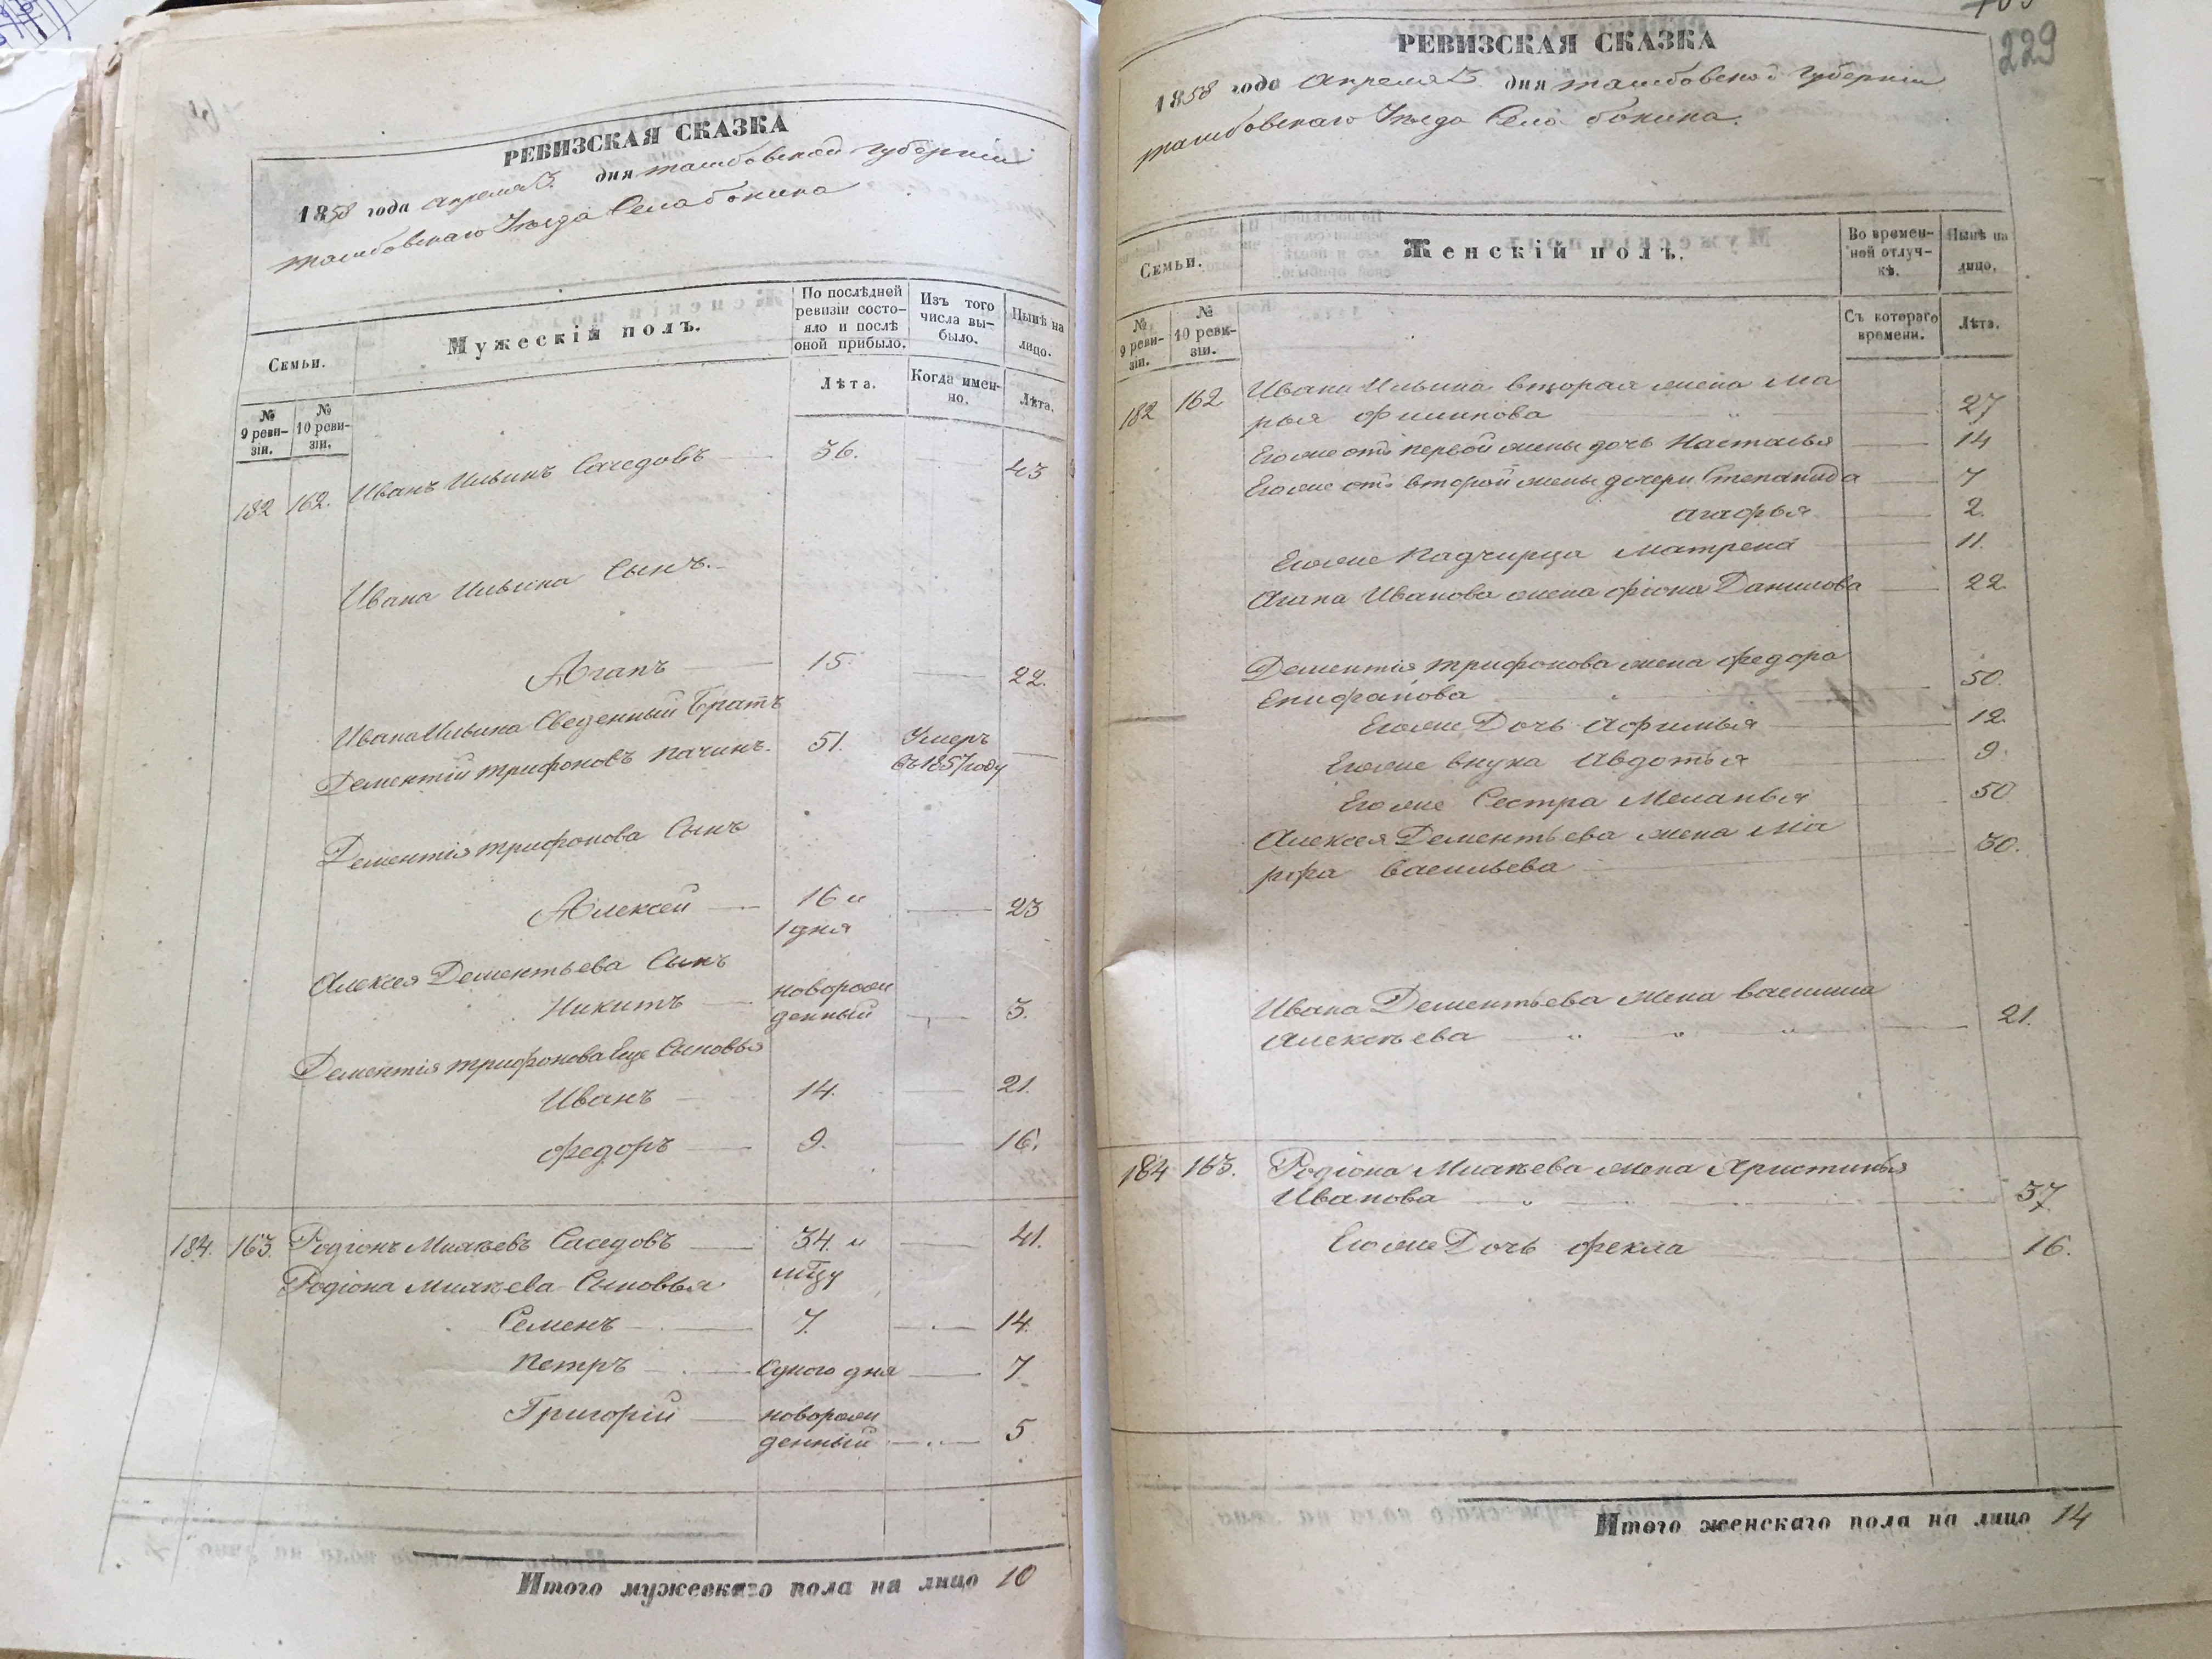 РЕВИЗСКАЯ СКАЗКА
1858 года апреля 3 дня тамбовской губернии
тамбовскаго Уезда Села бокина
Семьи.
Мужескій полъ.
По послѣдней ревизіи состо-
яло и послѣ
оной прибыло.
Изъ того
числа вы-
было.
Нынѣ на
лицо.
№
9 реви-
зіи.
№
10 реви-
зіи.
Лѣта.
Когда имен-
но.
Лѣта.
182 162. Иванъ Ильинъ 36. 43
Ивана Ильина Сынъ.
Агапъ 15. 22.
Ивана Ильина Сведенный Братъ
Дементій трифоновъ 51. Умеръ
въ 1857 году
Дементія трифонова Сынъ
Алексей 16 и 23
1 дня
Алексея Дементьева Сынъ
Никитъ новорож
денный 3.
Дементія трифонова Еще Сыновья
Иванъ 14. 21.
федоръ 9. 16.
184. 163. Родіонъ 34. и 41.
мцу
Родіона Сыновья
Семенъ 7. 14.
петръ Одного дня 7
Григорій новорож
денный 5
Итого мужескаго пола на лицо 10
229
РЕВИЗСКАЯ СКАЗКА
1858 года апреля 3 дня тамбовской губерніи
тамбовскаго Уезда Села бокина.
Семьи.
Женскій полъ.
Во времен-
ной отлуч-
кѣ.
Нынѣ на
лицо.
№
9 реви-
зіи.
№
10 реви-
зіи.
Съ котораго
времени.
Лѣта.
182 162 Ивана Ильина вторая жена Ма
рья филипова 27
Его же отъ первой жены дочь Насталья 14
Его же отъ второй жены дочери Степанида 7
агафья 2.
Его же падчирца матрена 11.
Агапа Иванова жена фіона Данилова 22
Дементія трифонова жена федора
Епифанова 50.
Его же Дочь Афимья 12.
Его же внука Авдотья 9.
Его же Сестра Меланья 50
Алексея Дементьева жена Ма
рфа васильева 30.
Ивана Дементьева жена василиса
Алексеева 21.
184 163. Родіона жена Христинья
Иванова 37.
Его же Дочь фекла 16.
Итого женскаго пола на лицо 14